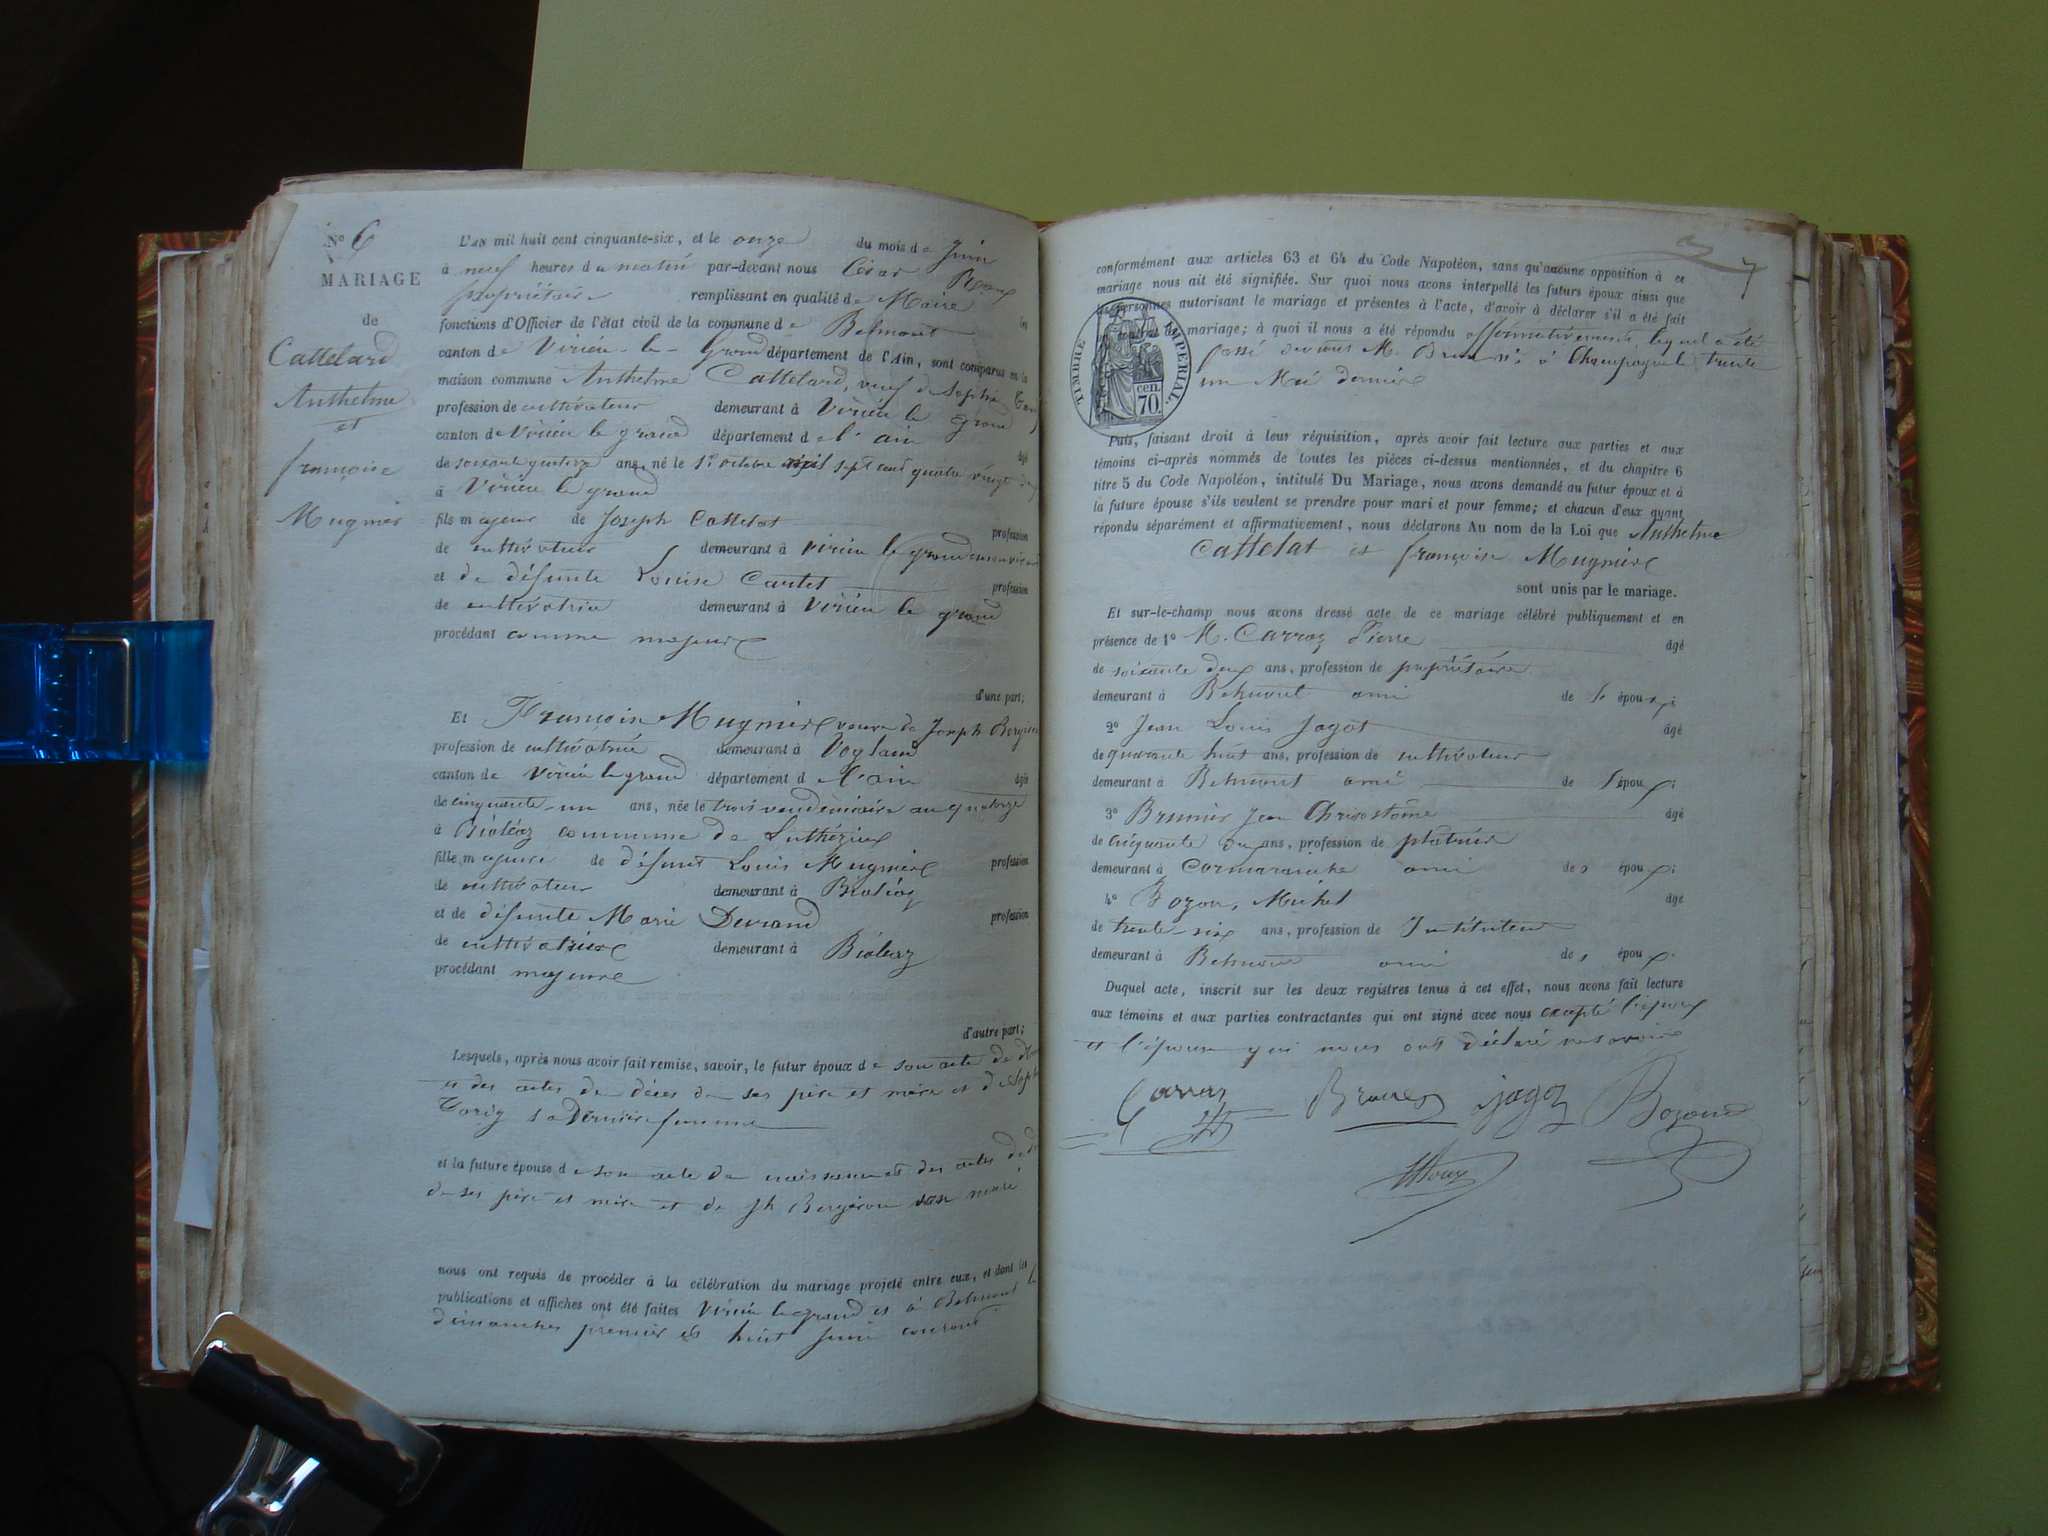 N° 6
MARIAGE
de
Cattelard
Anthelme
et
françoise
Mugnier
L'AN mil huit cent cinquante-six, et le onze du mois de Juin
à neuf heures du matin par-devant nous César Roux
propriétaire remplissant en qualité de Maire les
fonctions d'Officier de l'état civil de la commune de Belmont
canton de Virieu-le-Grand département de l'Ain, sont comparus en la
maison commune Anthelme Cattelard, veuf de Sophie
profession de cultivateur demeurant à Virieu le grand
canton de Virieu le grand département de l'ain âgé
de soixante quatorze ans, né le 1er octobre mil sept cent quatre vingt
à Virieu le grand
fils majeur de Joseph Cattelat profession
de cultivateur demeurant à Virieu le grand
et de défunte Louise Cartet profession
de cultivatrice demeurant à Virieu le grand
procédant comme majeur
d'une part;
Et Françoise Mugnier veuve de Joseph Bergeron
profession de cultivatrice demeurant à Voglans
canton de Virieu le grand département de l'ain âgée
de cinquante-un ans, née le trois vendémiaire an quatorze
à Bioléaz commune de Luthézieu
fille majeure de défunt Louis Mugnier profession
de cultivateur demeurant à Bioléaz
et de défunte Marie Durand profession
de cultivatrice demeurant à Bioléaz
procédant majeure
d'autre part;
Lesquels, après nous avoir fait remise, savoir, le futur époux de son acte de
et des actes de décès de ses père et mère et de Sophie
sa Dernière femme
et la future épouse de son acte de naissance et des actes de
de ses père et mère et de Jh Bergeron son mari
nous ont requis de procéder à la célébration du mariage projeté entre eux, et dont les
publications et affiches ont été faites Virieu le grand et à Belmont les
dimanches premier et huit Juin courant
7
conformément aux articles 63 et 64 du Code Napoléon, sans qu'aucune opposition à ce
mariage nous ait été signifiée. Sur quoi nous avons interpellé les futurs époux ainsi que
les personnes autorisant le mariage et présentes à l'acte, d'avoir à déclarer s'il a été fait
contrat de mariage; à quoi il nous a été répondu affirmativement, lequel a été
passé devant M. Brun à Champagne le trente
un Mai dernier
TIMBRE IMPERIAL.
70 cen.
Puis, faisant droit à leur réquisition, après avoir fait lecture aux parties et aux
témoins ci-après nommés de toutes les pièces ci-dessus mentionnées, et du chapitre 6
titre 5 du Code Napoléon, intitulé Du Mariage, nous avons demandé au futur époux et à
la future épouse s'ils veulent se prendre pour mari et pour femme; et chacun d'eux ayant
répondu séparément et affirmativement, nous déclarons Au nom de la Loi que Anthelme
Cattelat et françoise Mugnier
sont unis par le mariage.
Et sur-le-champ nous avons dressé acte de ce mariage célébré publiquement et en
présence de 1° M. Carraz Pierre âgé
de soixante deux ans, profession de propriétaire
demeurant à Belmont ami de l' époux;
2° Jean Louis Jagot âgé
de quarante huit ans, profession de cultivateur
demeurant à Belmont ami de l'époux;
3° Brunier Jean Chrisostôme âgé
de cinquante ans, profession de plâtrier
demeurant à Cormaranche ami de époux;
4° Bozon, Michel âgé
de trente-six ans, profession de Instituteur
demeurant à Belmont ami de époux.
Duquel acte, inscrit sur les deux registres tenus à cet effet, nous avons fait lecture
aux témoins et aux parties contractantes qui ont signé avec nous excepté l'époux
et l'épouse qui nous ont déclaré ne savoir
Carraz Brunier jagot Bozon
Roux